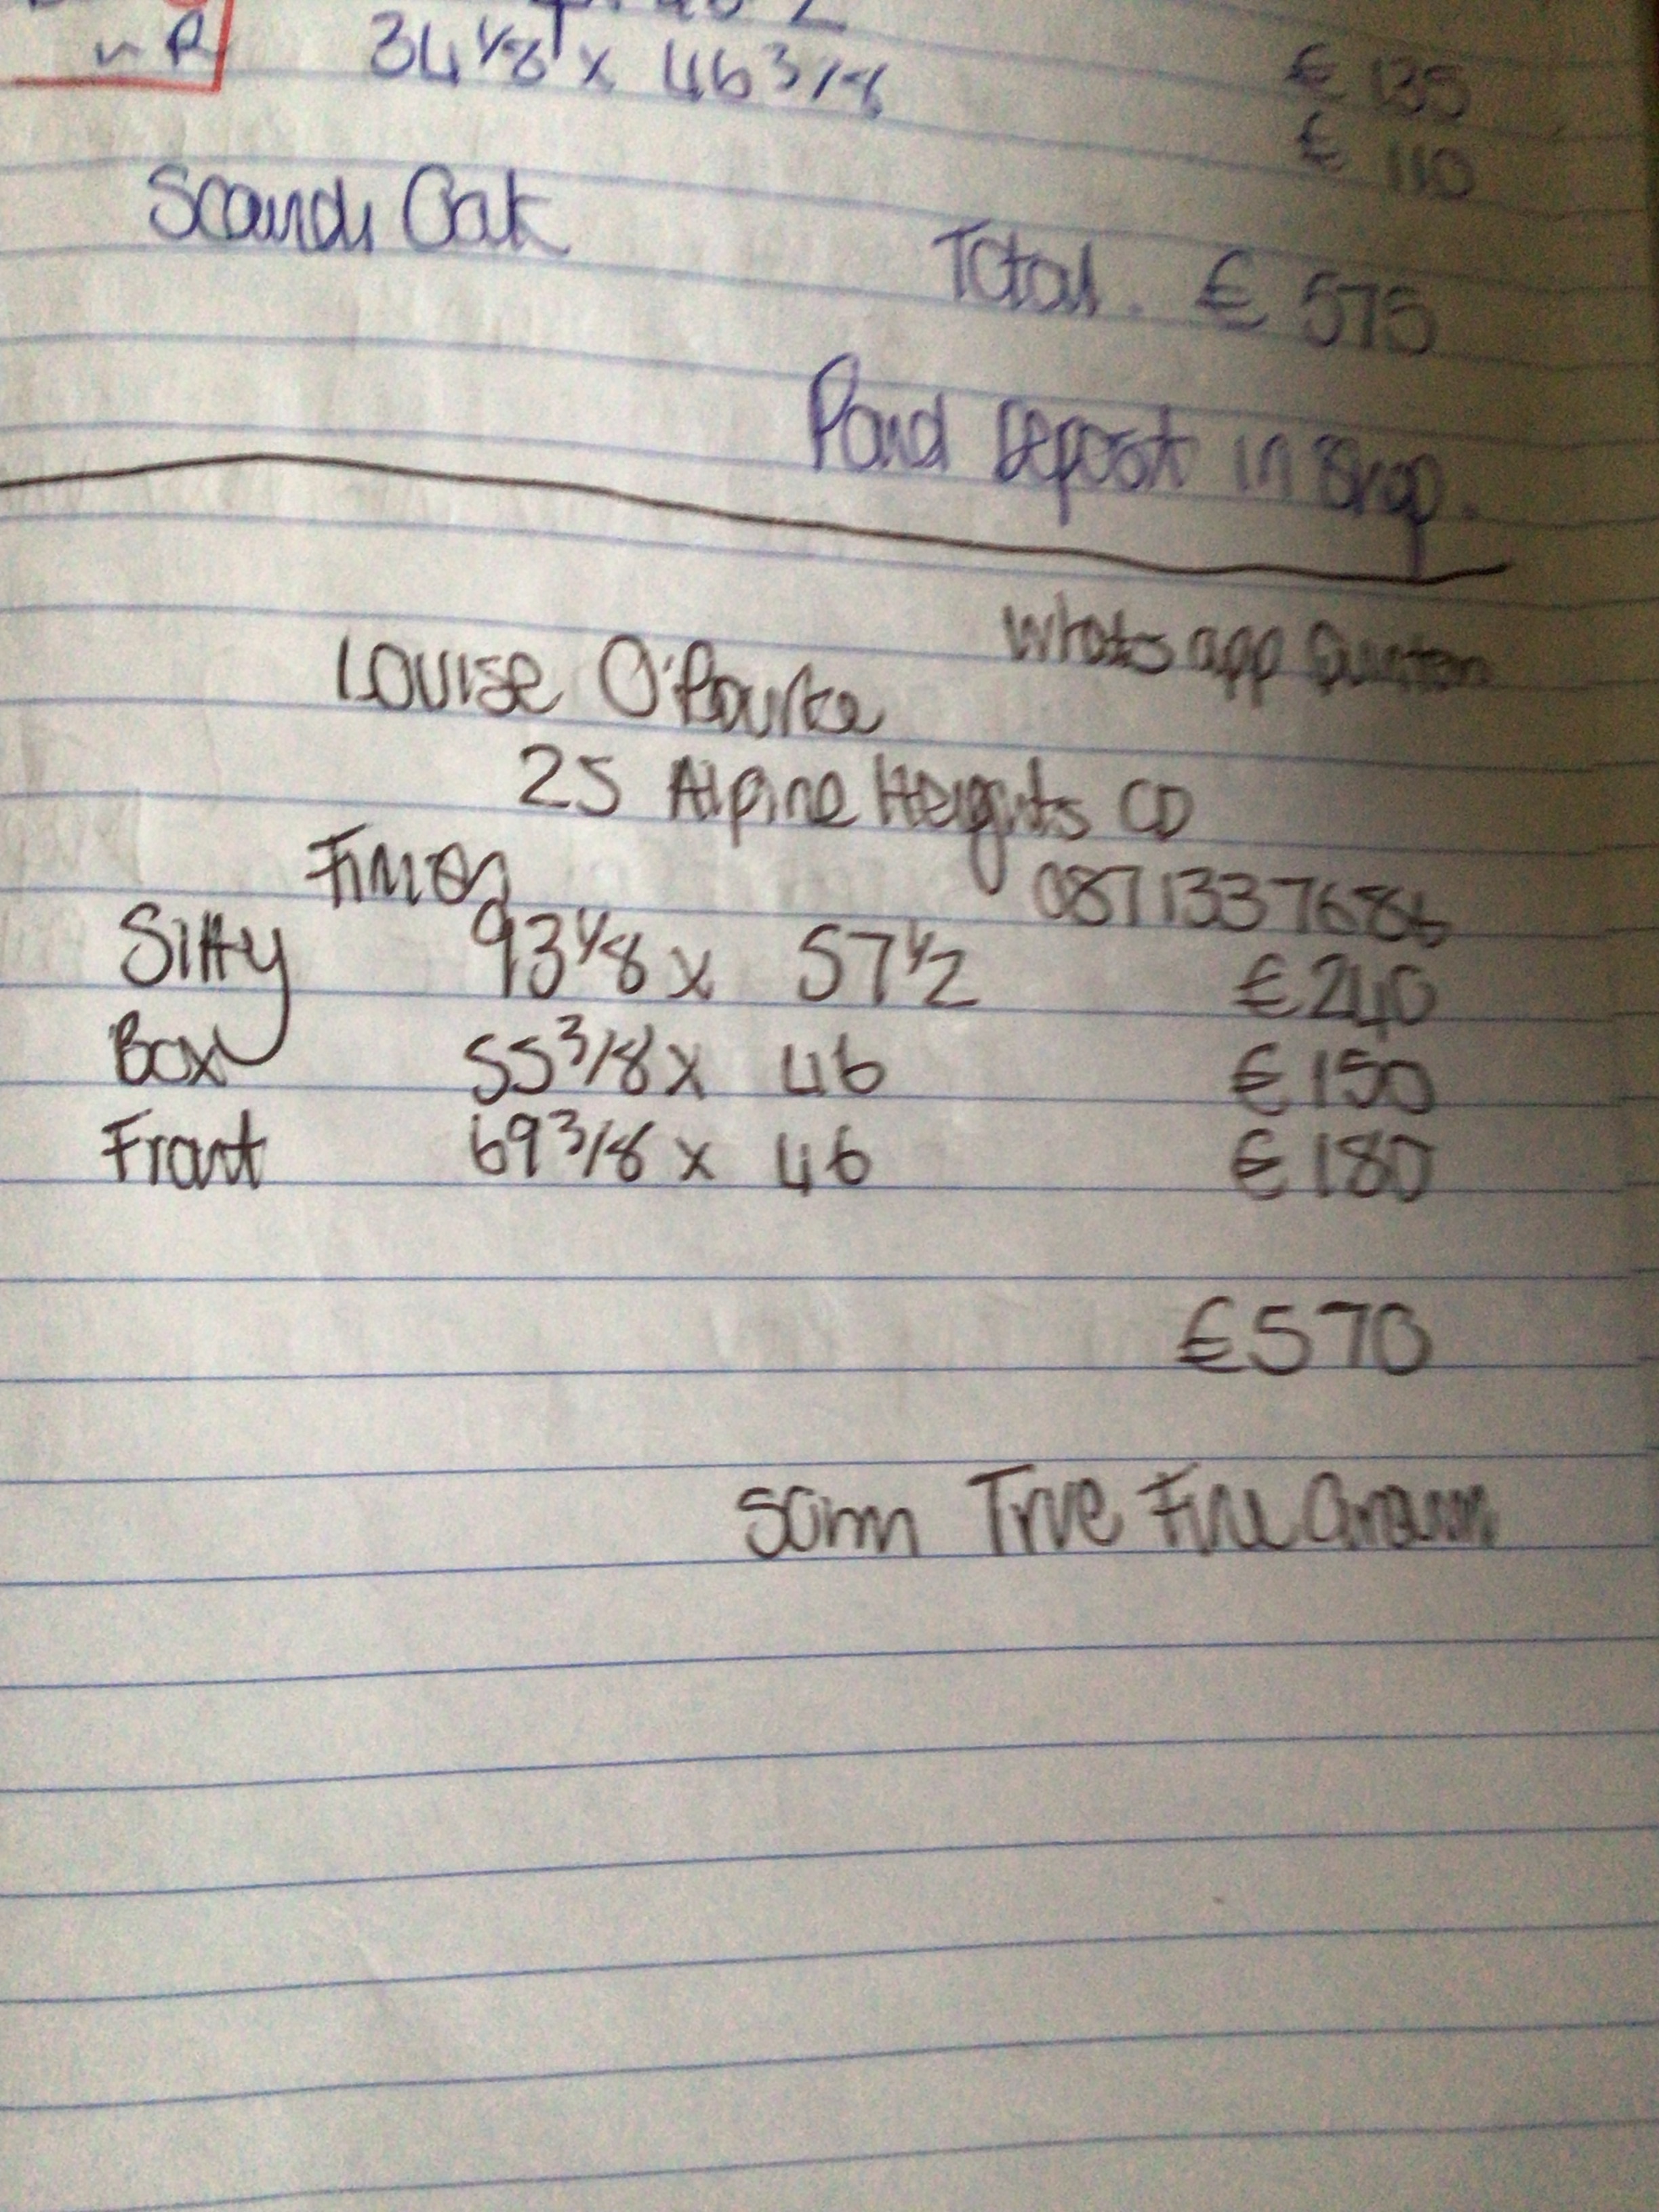 R
34 1/8 x 46 3/8
€ 135
€ 110
Scandi Oak
Total. € 575
Paid Deposit in Shop.
Whats app
Louise O'Rourke
25 Alpine Heights CD
0871337686
Sitty 93 1/8 x 57 1/2 €240
Box 55 3/8 x 46 €150
Front 69 3/8 x 46 €180
€570
50mm True Fine Grain